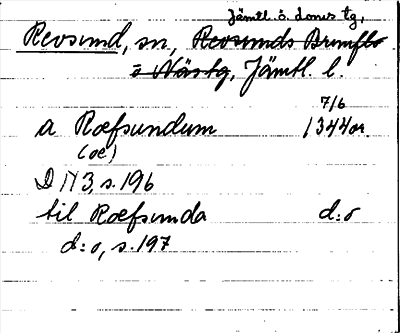 Jämtl. ö. doms tg,
Revsund, sn, Revsunds Brunflo
o Näs tg, Jämtl. l.
7/6
a Ræfsundum 1344 or.
(œ)
DN 3, s. 196
til Ræfsunda d:o
d:o, s. 197